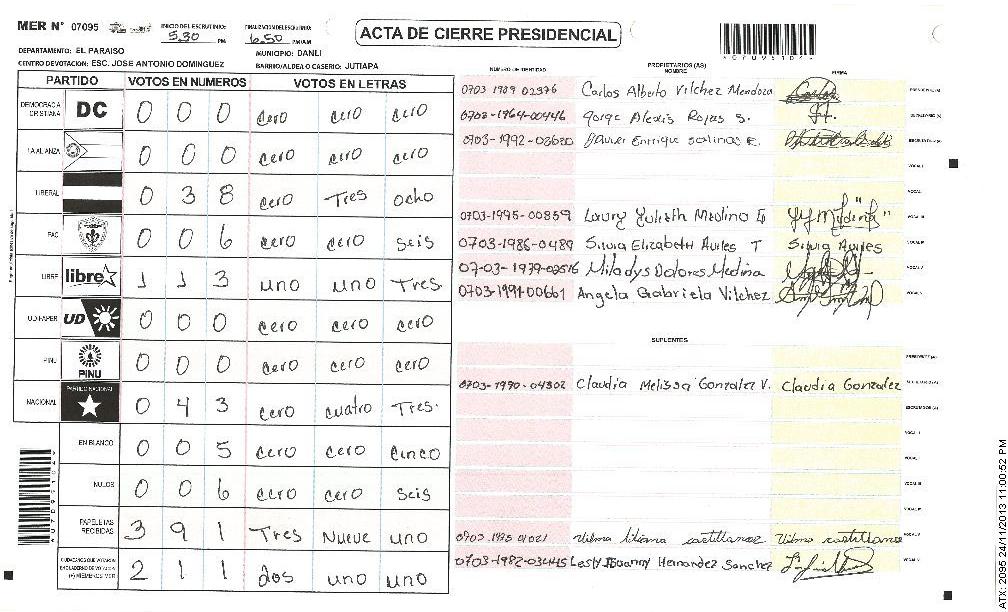 MER N° 07095
INICIO DEL ESCRUTINIO: 5.30 PM
FINALIZACION DEL ESCRUTINIO: 6.50 PM/AM
ACTA DE CIERRE PRESIDENCIAL
DEPARTAMENTO: EL PARAISO
MUNICIPIO: DANLI
CENTRO DE VOTACION: ESC. JOSE ANTONIO DOMINGUEZ
BARRIO/ALDEA O CASERIO: JUTIAPA
PARTIDO VOTOS EN NUMEROS VOTOS EN LETRAS
DEMOCRACIA CRISTIANA DC 0 0 0 cero cero cero
LA ALIANZA 0 0 0 cero cero cero
LIBERAL 0 3 8 cero Tres ocho
PAC 0 0 6 cero cero seis
LIBRE libre 1 1 3 uno uno Tres
UD FAPER UD 0 0 0 cero cero cero
PINU PINU 0 0 0 cero cero cero
NACIONAL PARTIDO NACIONAL 0 4 3 cero cuatro Tres.
EN BLANCO 0 0 5 cero cero cinco
NULOS 0 0 6 cero cero seis
PAPELETAS RECIBIDAS 3 9 1 Tres Nueve uno
CIUDADANOS QUE VOTARON 2 1 1 dos uno uno
(+) MIEMBROS MER
PROPIETARIOS (AS)
NUMERO DE IDENTIDAD NOMBRE FIRMA
0703 1989 02376 Carlos Alberto Vilchez Mendoza
0703-1964-00446 Jorge Alexis Rojas S.
0703-1992-03620 Javier Enrique salinas E.
VOCAL I
VOCAL
0703-1995-00859 Laury Yulieth Medina
0703-1986-0489 Silvia Elizabeth Aviles T Silvia Aviles
07-03-1979-02516 Miladys Dolores Medina
0703-1991-00661 Angela Gabriela Vilchez
SUPLENTES
0703-1990-04302 Claudia Melissa Gonzalez V. Claudia Gonzalez
0703 1995 01021 Vilma liliana castillanos Vilma castillanos
0703-1982-03445 Lesly Hernandez Sanchez
ATX: 2095 24/11/2013 11:00:52 PM